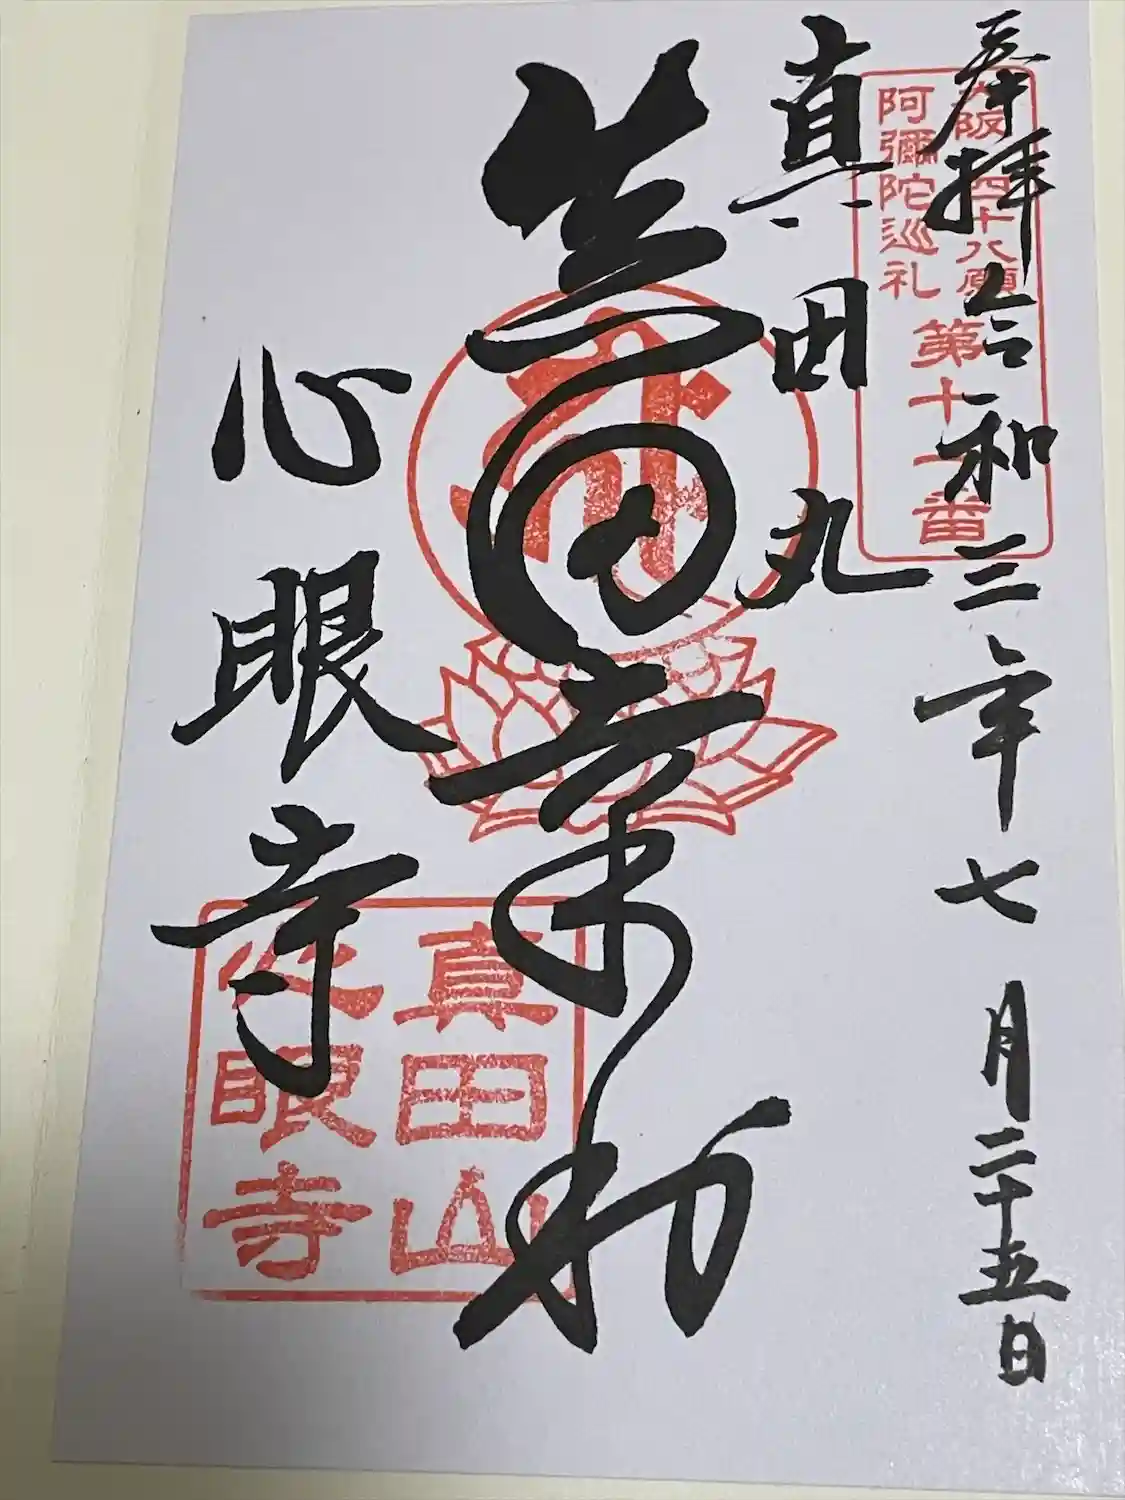 奉拝 令和三年七月二十五日
大阪四十八願
阿彌陀巡礼
第十一番
真田丸
心眼寺
真田山
心眼寺